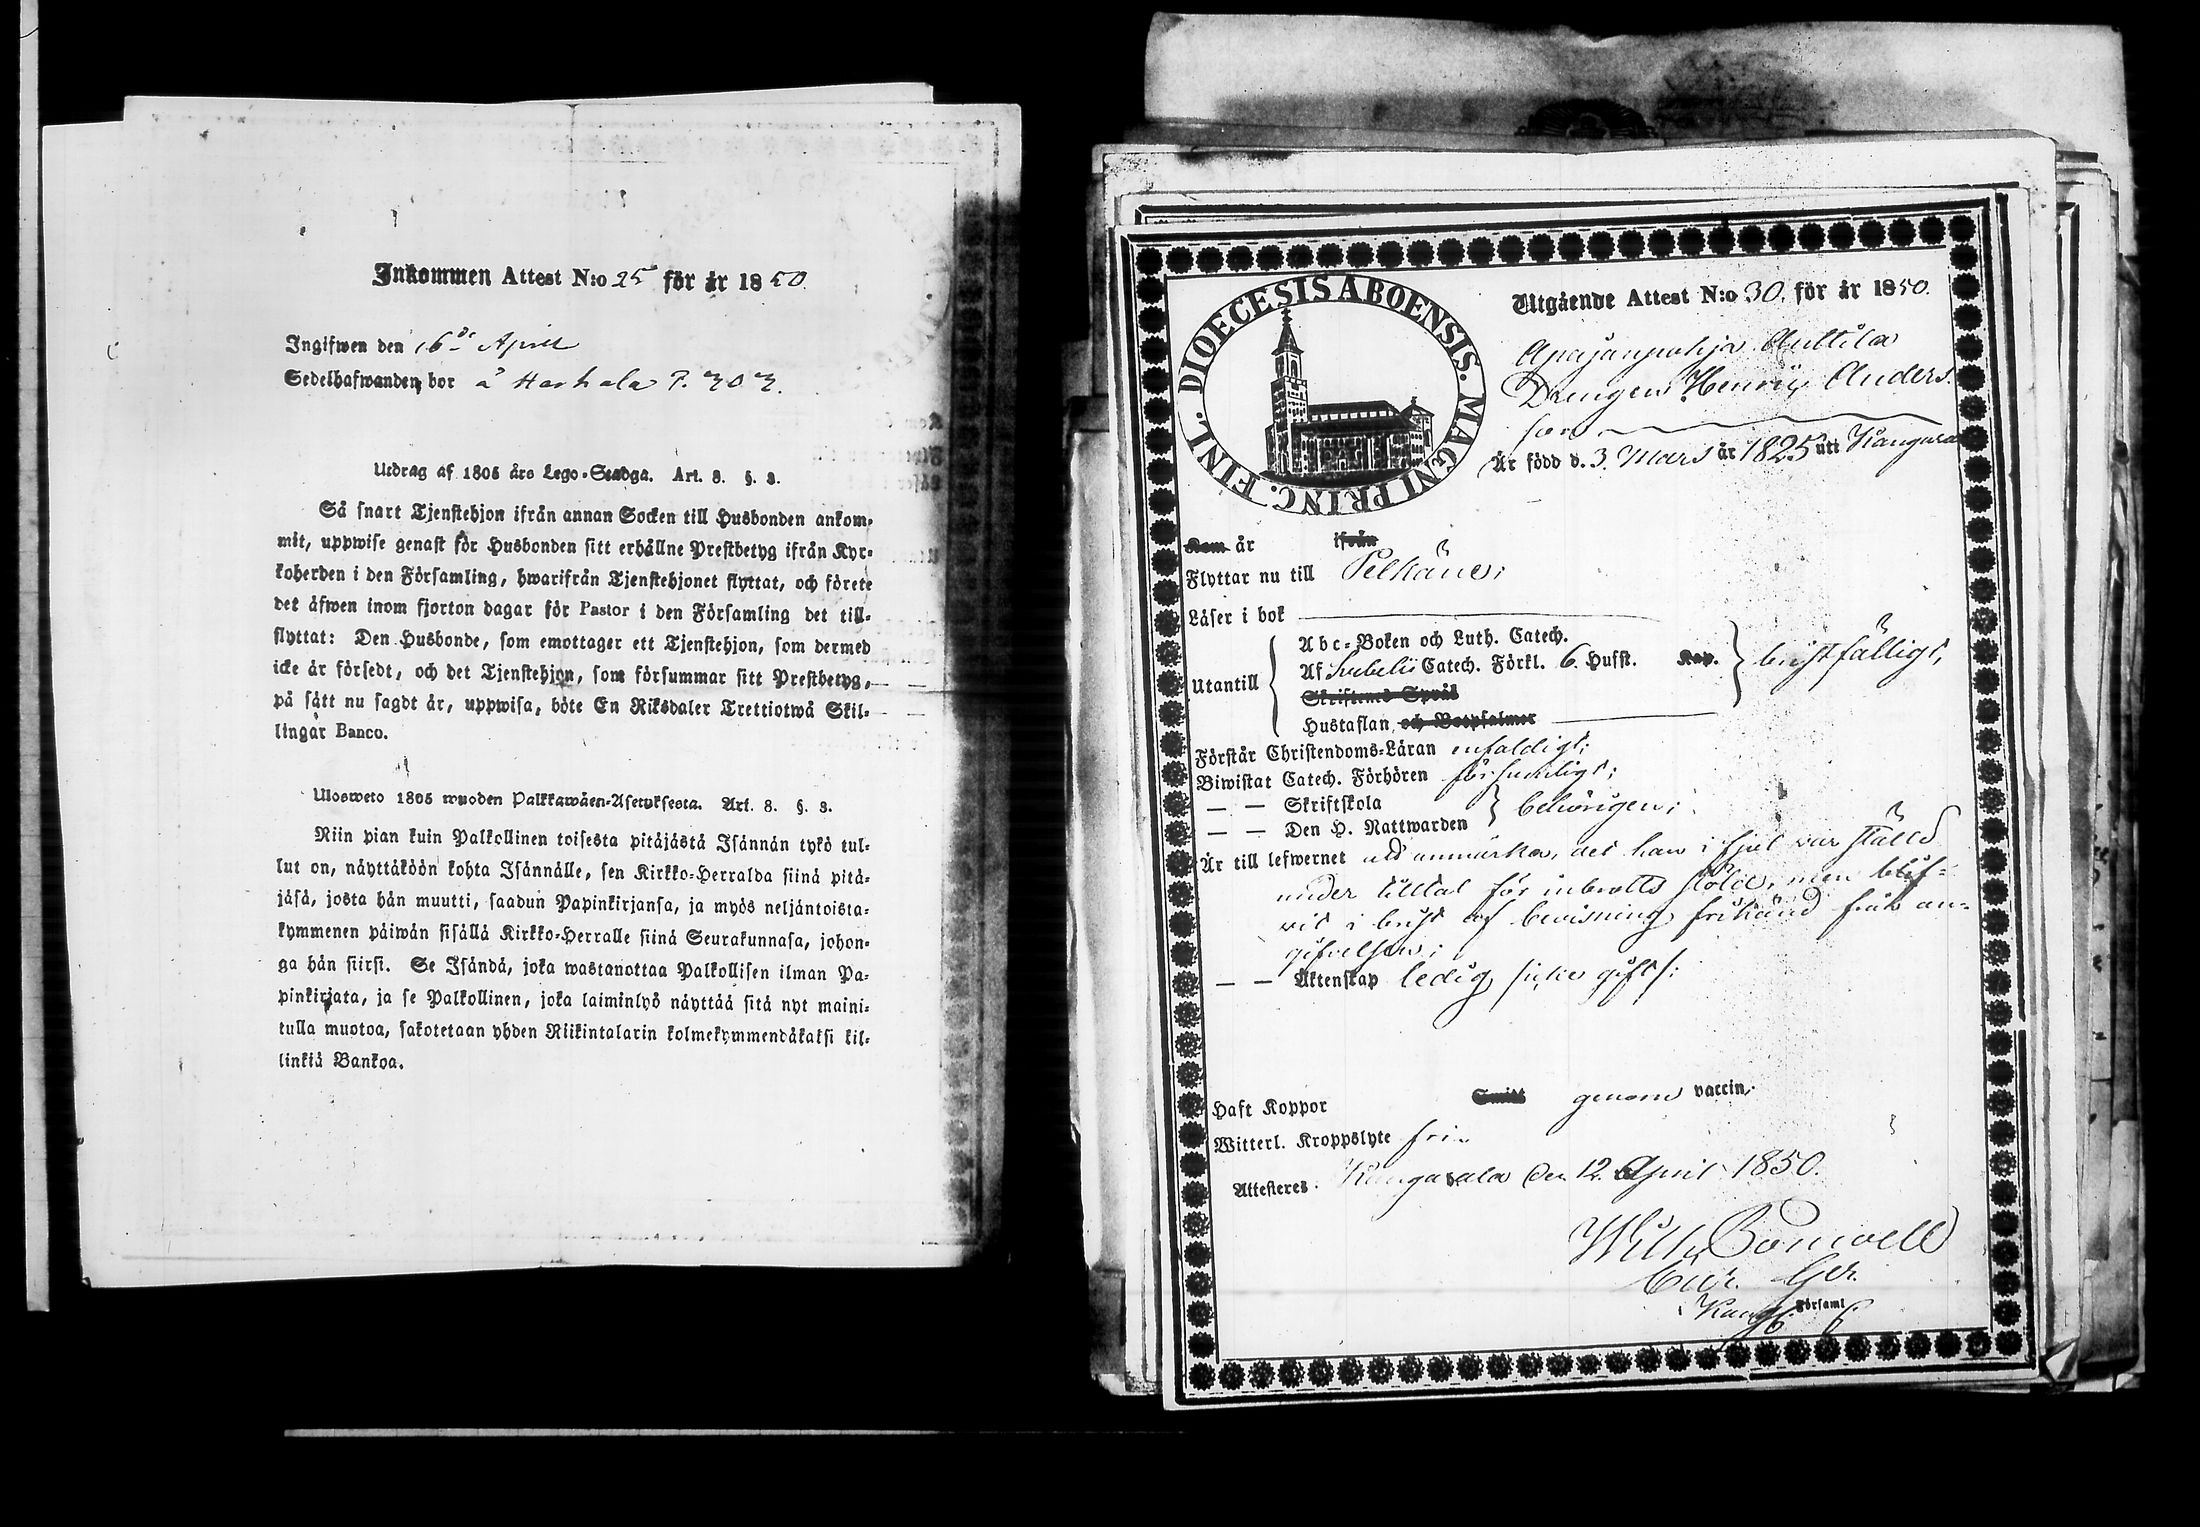 Inkommen Attest N:o 25 för år 1850.
Ingifwen den 16de April
Sedelhafwanden bor å Harhala P. 303.
Utdrag af 1805 års Lego-Stadga. Art. 8. §. 3.
Så snart Tjenstehjon ifrån annan Socken till Husbonden ankom-
mit, uppwise genast för Husbonden sitt erhållne Prestbetyg ifrån Kyr-
koherden i den Församling, hwarifrån Tjenstehjonet flyttat, och förete
det äfwen inom fjorton dagar för Pastor i den Församling det till-
flyttat: Den Husbonde, som emottager ett Tjenstehjon, som dermed
icke är försedt, och det Tjenstehjon, som försummar sitt Prestbetyg,
på sätt nu sagdt är, uppwisa, böte En Riksdaler Trettiotwå Skil-
lingar Banco.
Ulosweto 1805 wuoden Palkkawäen-Asetuksesta. Art. 8. §. 3.
Niin pian kuin Palkollinen toisesta pitäjästä Isännän tykö tul-
lut on, näyttäköön kohta Isännälle, sen Kirkko-Herralda siinä pitä-
jäsä, josta hän muutti, saadun Papinkirjansa, ja myös neljäntoista-
kymmenen päiwän sisällä Kirkko-Herralle siinä Seurakunnasa, johon-
ga hän siirsi. Se Isändä, joka wastanottaa Palkollisen ilman Pa-
pinkirjata, ja se Palkollinen, joka laiminlyö näyttää sitä nyt maini-
tulla muotoa, sakotetaan yhden Riikintalarin kolmekymmendäkaksi kil-
linkiä Bankoa.
DIOECESIS ABOENSIS. MAGNI PRINC. FINL.
Utgående Attest N:o 30. för år 1850.
Apajanpohja Anttila
Drengen Henrik Anders
son
Är född d. 3 Mars år 1825 uti Kangasa
Kom år ifrån
Flyttar nu till Pelkäne;
Läser i bok
Utantill
Abc-Boken och Luth. Catech.
Af Svebelii Catech. Förkl. 6 Hufst. Kap.
Skriftens Språk
Hustaflan och Botpsalmer
bristfälligt,
Förstår Christendoms-Läran enfaldigt;
Biwistat Catech. Förhören försumligt;
— — Skriftskola
— — Den H. Nattwarden
behörigen;
Är till lefwernet att anmärka, det han i fjol var ställd
under tilltal för inbrotts stöld, men blif-
vit i brist af bevisning frikänd från an-
gifvelsen;
— — Äktenskap ledig /icke gift/:
Haft Koppor Smitt genom vaccin.
Witterl. Kroppslyte fri.
Attesteres. Kangasala den 12. April 1850.
Wilh. Bonwell
Församl